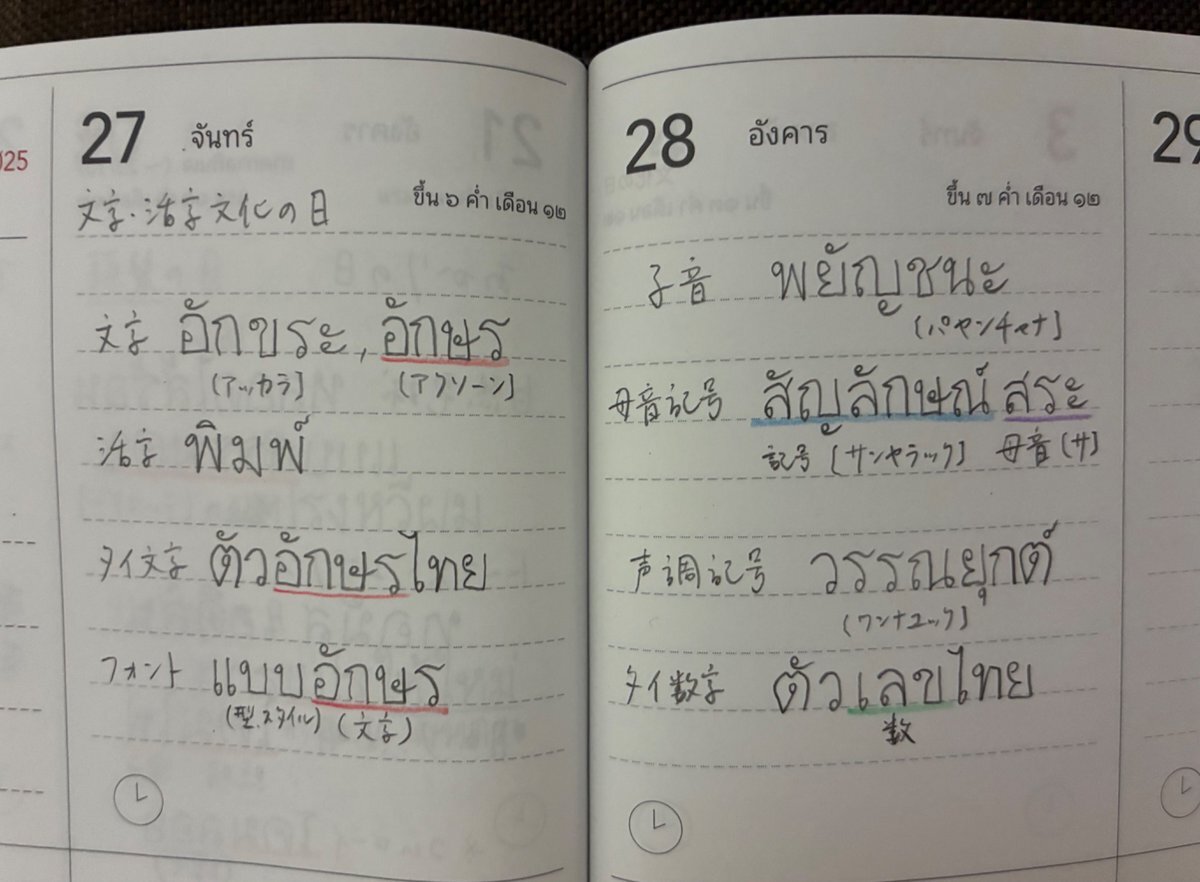 025
27 จันทร์
ขึ้น ๖ ค่ำ เดือน ๑๒
文字・活字文化の日
文字 อักขระ, อักษร
(アッカラ) (アクソーン)
活字 พิมพ์
タイ文字 ตัวอักษรไทย
フォント แบบอักษร
(型.スタイル) (文字)
28 อังคาร
ขึ้น ๗ ค่ำ เดือน ๑๒
子音 พยัญชนะ
(パヤンチャナ)
母音記号 สัญลักษณ์ สระ
記号 (サンヤラック) 母音 (サ)
声調記号 วรรณยุกต์
(ワンナユック)
タイ数字 ตัวเลขไทย
数
29